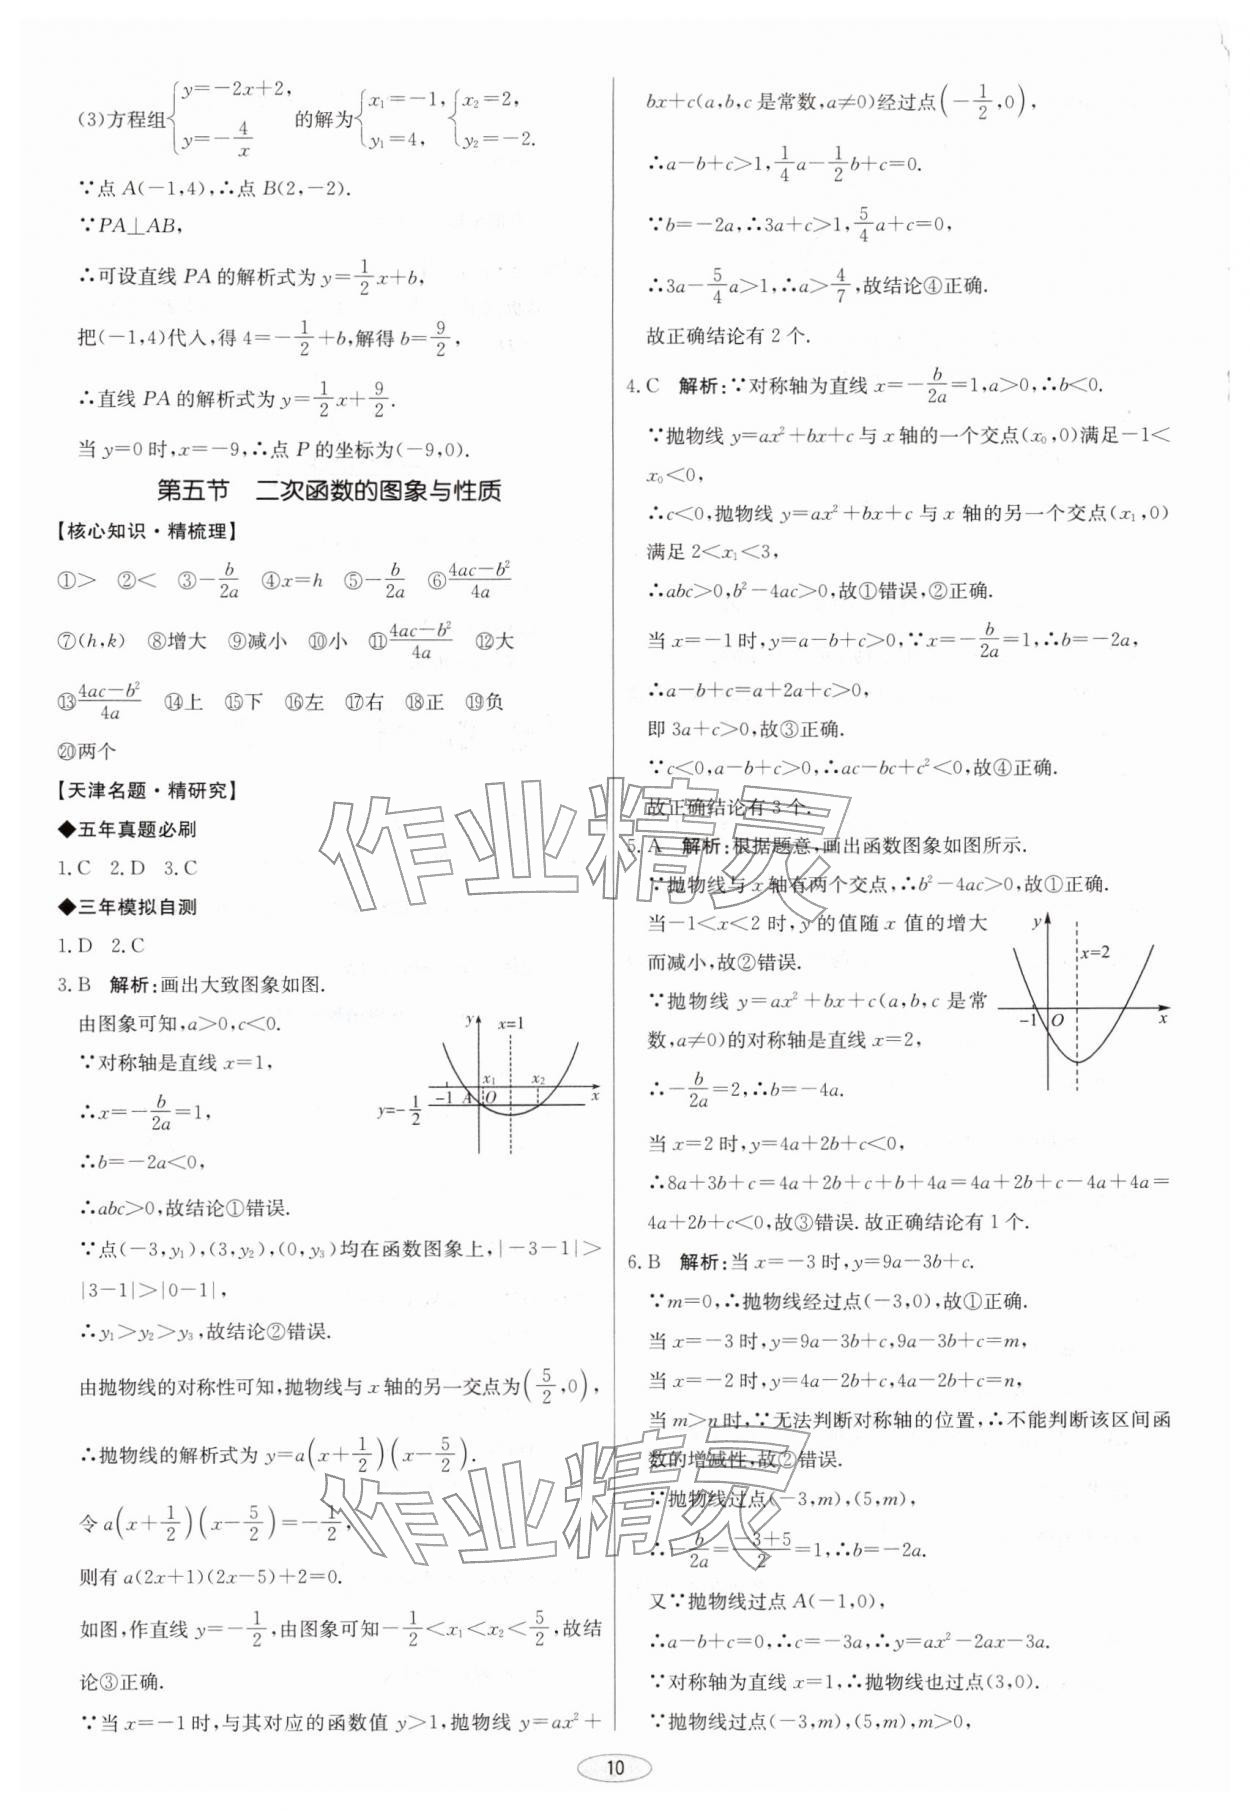 (3)方程组{y=-2x+2, y=-4/x 的解为{x₁=-1, y₁=4, {x₂=2, y₂=-2.
∵点 A(-1,4),∴点 B(2,-2).
∵PA⊥AB,
∴可设直线 PA 的解析式为 y=1/2x+b,
把(-1,4)代入,得 4=-1/2+b,解得 b=9/2,
∴直线 PA 的解析式为 y=1/2x+9/2.
当 y=0 时,x=-9,∴点 P 的坐标为(-9,0).
第五节 二次函数的图象与性质
【核心知识·精梳理】
①> ②< ③-b/2a ④x=h ⑤-b/2a ⑥(4ac-b²)/4a
⑦(h,k) ⑧增大 ⑨减小 ⑩小 ⑪(4ac-b²)/4a ⑫大
⑬(4ac-b²)/4a ⑭上 ⑮下 ⑯左 ⑰右 ⑱正 ⑲负
⑳两个
【天津名题·精研究】
◆五年真题必刷
1.C 2.D 3.C
◆三年模拟自测
1.D 2.C
3.B 解析:画出大致图象如图.
由图象可知,a>0,c<0.
∵对称轴是直线 x=1,
∴x=-b/2a=1,
∴b=-2a<0,
∴abc>0,故结论①错误.
y x=1
x₁ x₂
-1 A O x
y=-1/2
∵点(-3,y₁),(3,y₂),(0,y₃)均在函数图象上,|-3-1|>
|3-1|>|0-1|,
∴y₁>y₂>y₃,故结论②错误.
由抛物线的对称性可知,抛物线与 x 轴的另一交点为(5/2,0),
∴抛物线的解析式为 y=a(x+1/2)(x-5/2).
令 a(x+1/2)(x-5/2)=-1/2,
则有 a(2x+1)(2x-5)+2=0.
如图,作直线 y=-1/2,由图象可知-1/2<x₁<x₂<5/2,故结
论③正确.
∵当 x=-1 时,与其对应的函数值 y>1,抛物线 y=ax²+
bx+c(a,b,c 是常数,a≠0)经过点(-1/2,0),
∴a-b+c>1,1/4a-1/2b+c=0.
∵b=-2a,∴3a+c>1,5/4a+c=0,
∴3a-5/4a>1,∴a>4/7,故结论④正确.
故正确结论有 2 个.
4.C 解析:∵对称轴为直线 x=-b/2a=1,a>0,∴b<0.
∵抛物线 y=ax²+bx+c 与 x 轴的一个交点(x₀,0)满足-1<
x₀<0,
∴c<0,抛物线 y=ax²+bx+c 与 x 轴的另一个交点(x₁,0)
满足 2<x₁<3,
∴abc>0,b²-4ac>0,故①错误,②正确.
当 x=-1 时,y=a-b+c>0,∵x=-b/2a=1,∴b=-2a,
∴a-b+c=a+2a+c>0,
即 3a+c>0,故③正确.
∵c<0,a-b+c>0,∴ac-bc+c²<0,故④正确.
故正确结论有 3 个.
5.A 解析:根据题意,画出函数图象如图所示.
∵抛物线与 x 轴有两个交点,∴b²-4ac>0,故①正确.
当-1<x<2 时,y 的值随 x 值的增大
而减小,故②错误.
∵抛物线 y=ax²+bx+c(a,b,c 是常
数,a≠0)的对称轴是直线 x=2,
∴-b/2a=2,∴b=-4a.
y
x=2
-1 O x
当 x=2 时,y=4a+2b+c<0,
∴8a+3b+c=4a+2b+c+b+4a=4a+2b+c-4a+4a=
4a+2b+c<0,故③错误. 故正确结论有 1 个.
6.B 解析:当 x=-3 时,y=9a-3b+c.
∵m=0,∴抛物线经过点(-3,0),故①正确.
当 x=-3 时,y=9a-3b+c,9a-3b+c=m,
当 x=-2 时,y=4a-2b+c,4a-2b+c=n,
当 m>n 时,∵无法判断对称轴的位置,∴不能判断该区间函
数的增减性,故②错误.
∵抛物线过点(-3,m),(5,m),
∴-b/2a=(-3+5)/2=1,∴b=-2a.
又∵抛物线过点 A(-1,0),
∴a-b+c=0,∴c=-3a,∴y=ax²-2ax-3a.
∵对称轴为直线 x=1,∴抛物线也过点(3,0).
∵抛物线过点(-3,m),(5,m),m>0,
10
作业精灵
作业精灵